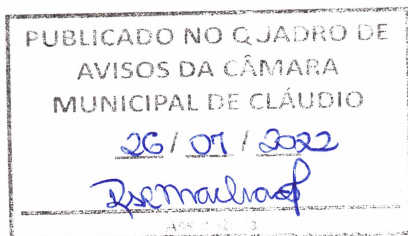 PUBLICADO NO QUADRO DE
AVISOS DA CÂMARA
MUNICIPAL DE CLÁUDIO
26/07/2022